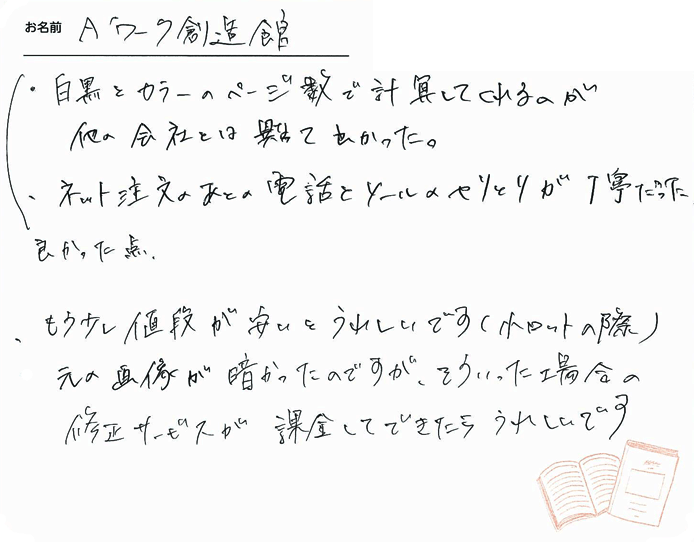 お名前 Aワーク創造館
・白黒とカラーのページ数で計算してくれるのが
他の会社とは異なって良かった。
・ネット注文のあとの電話とメールのやりとりが丁寧だった
良かった点.
、もう少し値段が安いとうれしいです(小ロットの際)
元の画像が暗かったのですが、そういった場合の
修正サービスが課金してできたらうれしいです